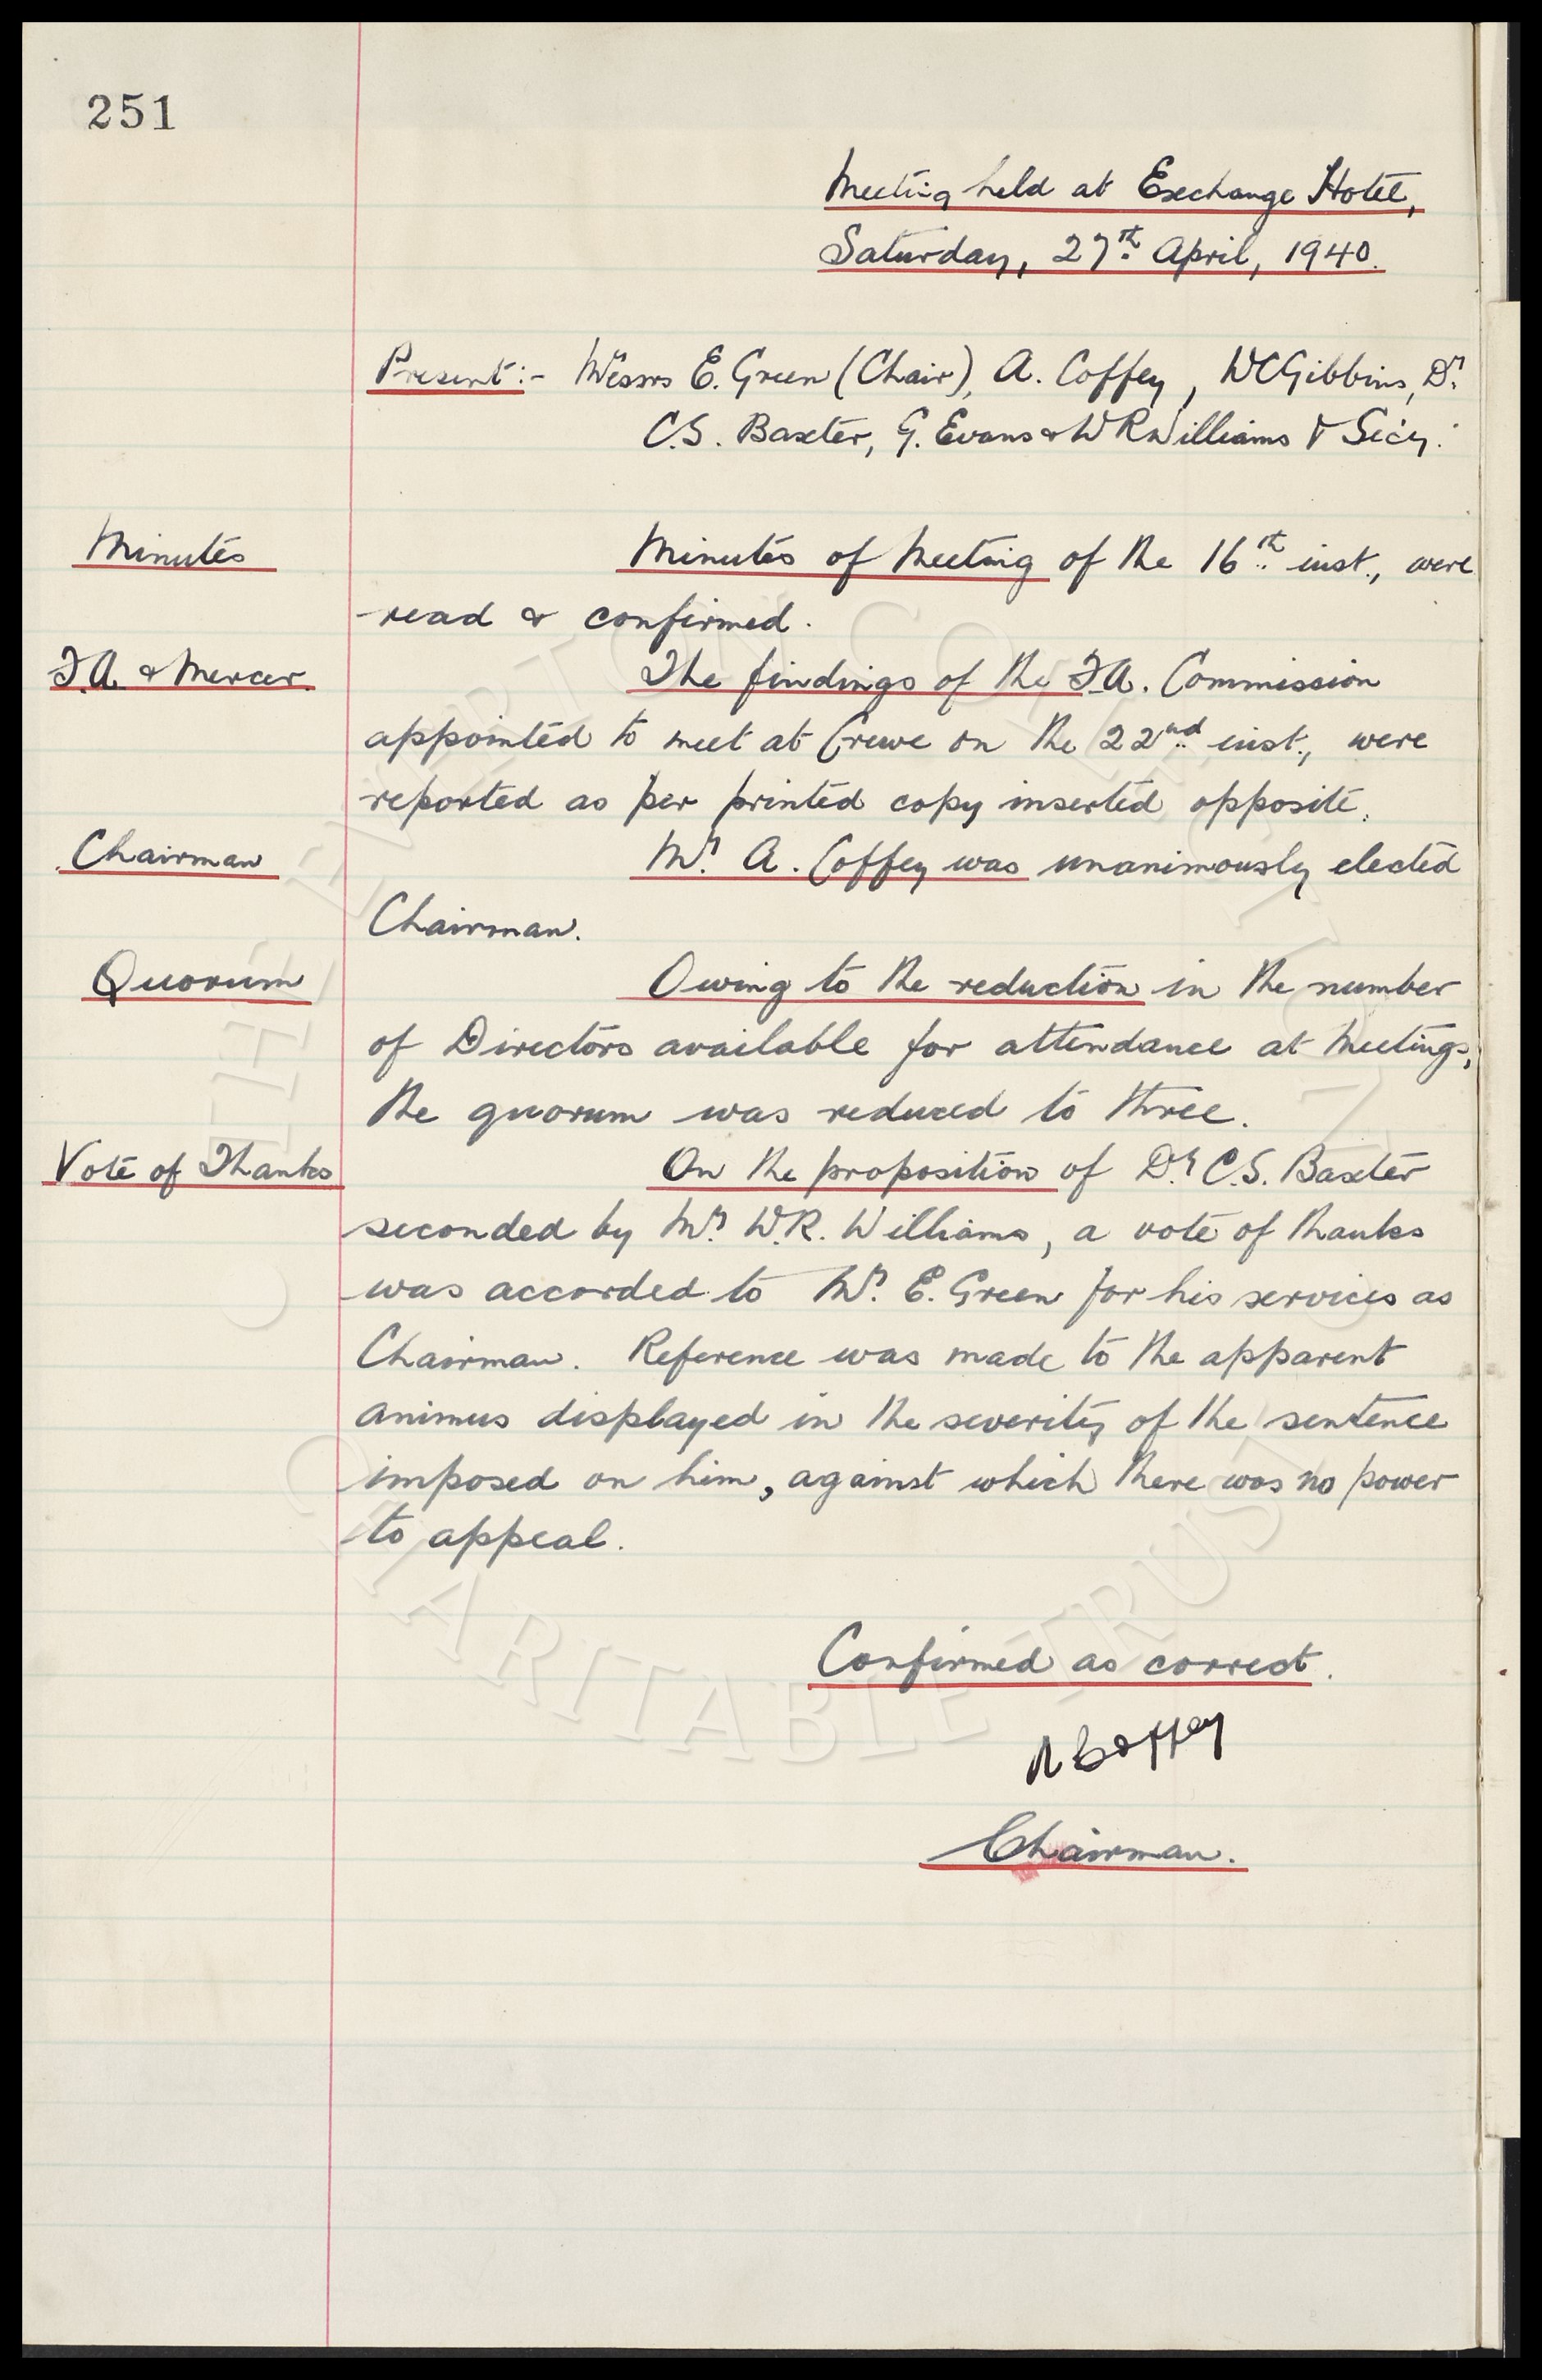 251
Meeting held at Exchange Hotel,
Saturday, 27th April, 1940.
Present:- Messrs E. Green (Chair), A. Coffey, W C Gibbins, Dr
C.S. Baxter, G. Evans & W R Williams & Secy.
Minutes
Minutes of Meeting of the 16th inst., were
read & confirmed.
F.A. & Mercer.
The findings of the F.A. Commission
appointed to meet at Crewe on the 22nd inst., were
reported as per printed copy inserted opposite.
Chairman
Mr. A. Coffey was unanimously elected
Chairman.
Quorum
Owing to the reduction in the number
of Directors available for attendance at Meetings,
the quorum was reduced to three.
Vote of Thanks
On the proposition of Dr. C.S. Baxter
seconded by Mr. W.R. Williams, a vote of thanks
was accorded to Mr. E. Green for his services as
Chairman. Reference was made to the apparent
animus displayed in the severity of the sentence
imposed on him, against which there was no power
to appeal.
Confirmed as correct.
A Coffey
Chairman.